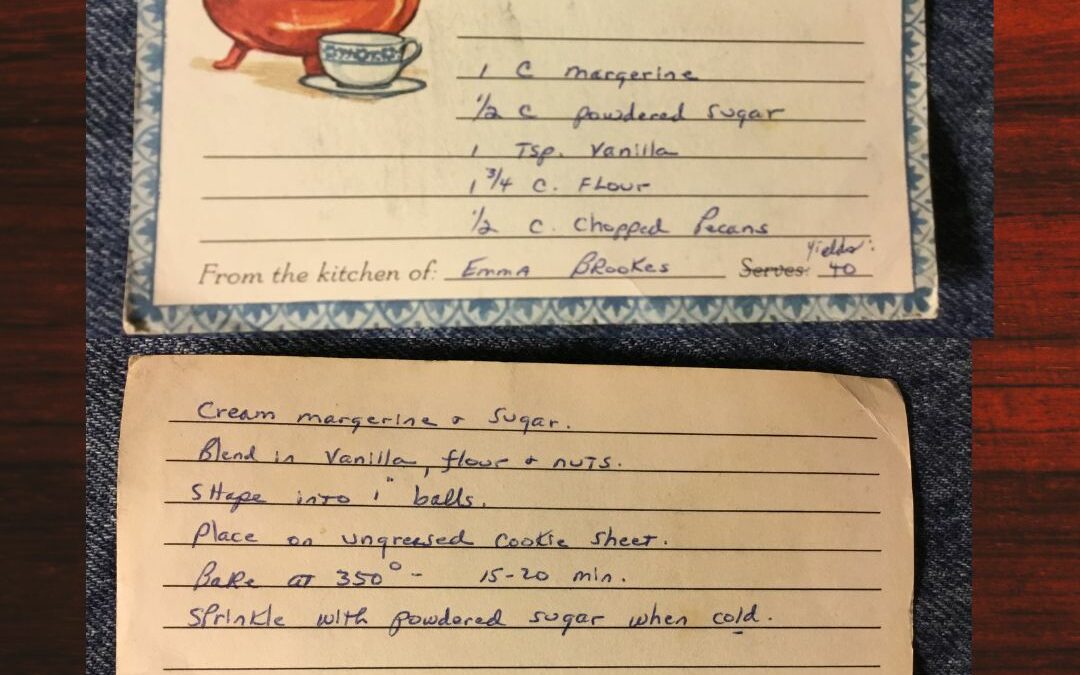 1 C margerine
1/2 C powdered sugar
1 Tsp. Vanilla
1 3/4 C. Flour
1/2 C. Chopped Pecans
Yields:
From the kitchen of: Emma Brookes Serves: 40
Cream margerine & sugar.
Blend in Vanilla, flour & nuts.
Shape into 1" balls.
Place on ungreased cookie sheet.
Bake at 350° - 15-20 min.
Sprinkle with powdered sugar when cold.